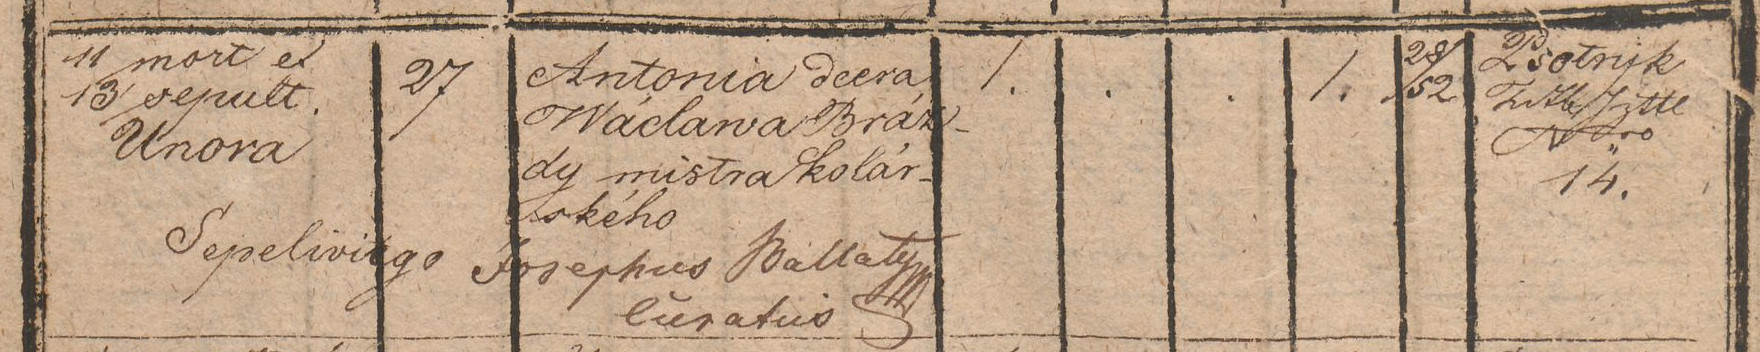 11 mort et
13 sepult.
Unora
27
Antonia dcera
Wáclawa Bráz-
dy mistra kolár-
ského
1. . . 1.
28/52
Psotnjk
Nro
14.
Sepelivit ego Josephus Ballaty
Curatus